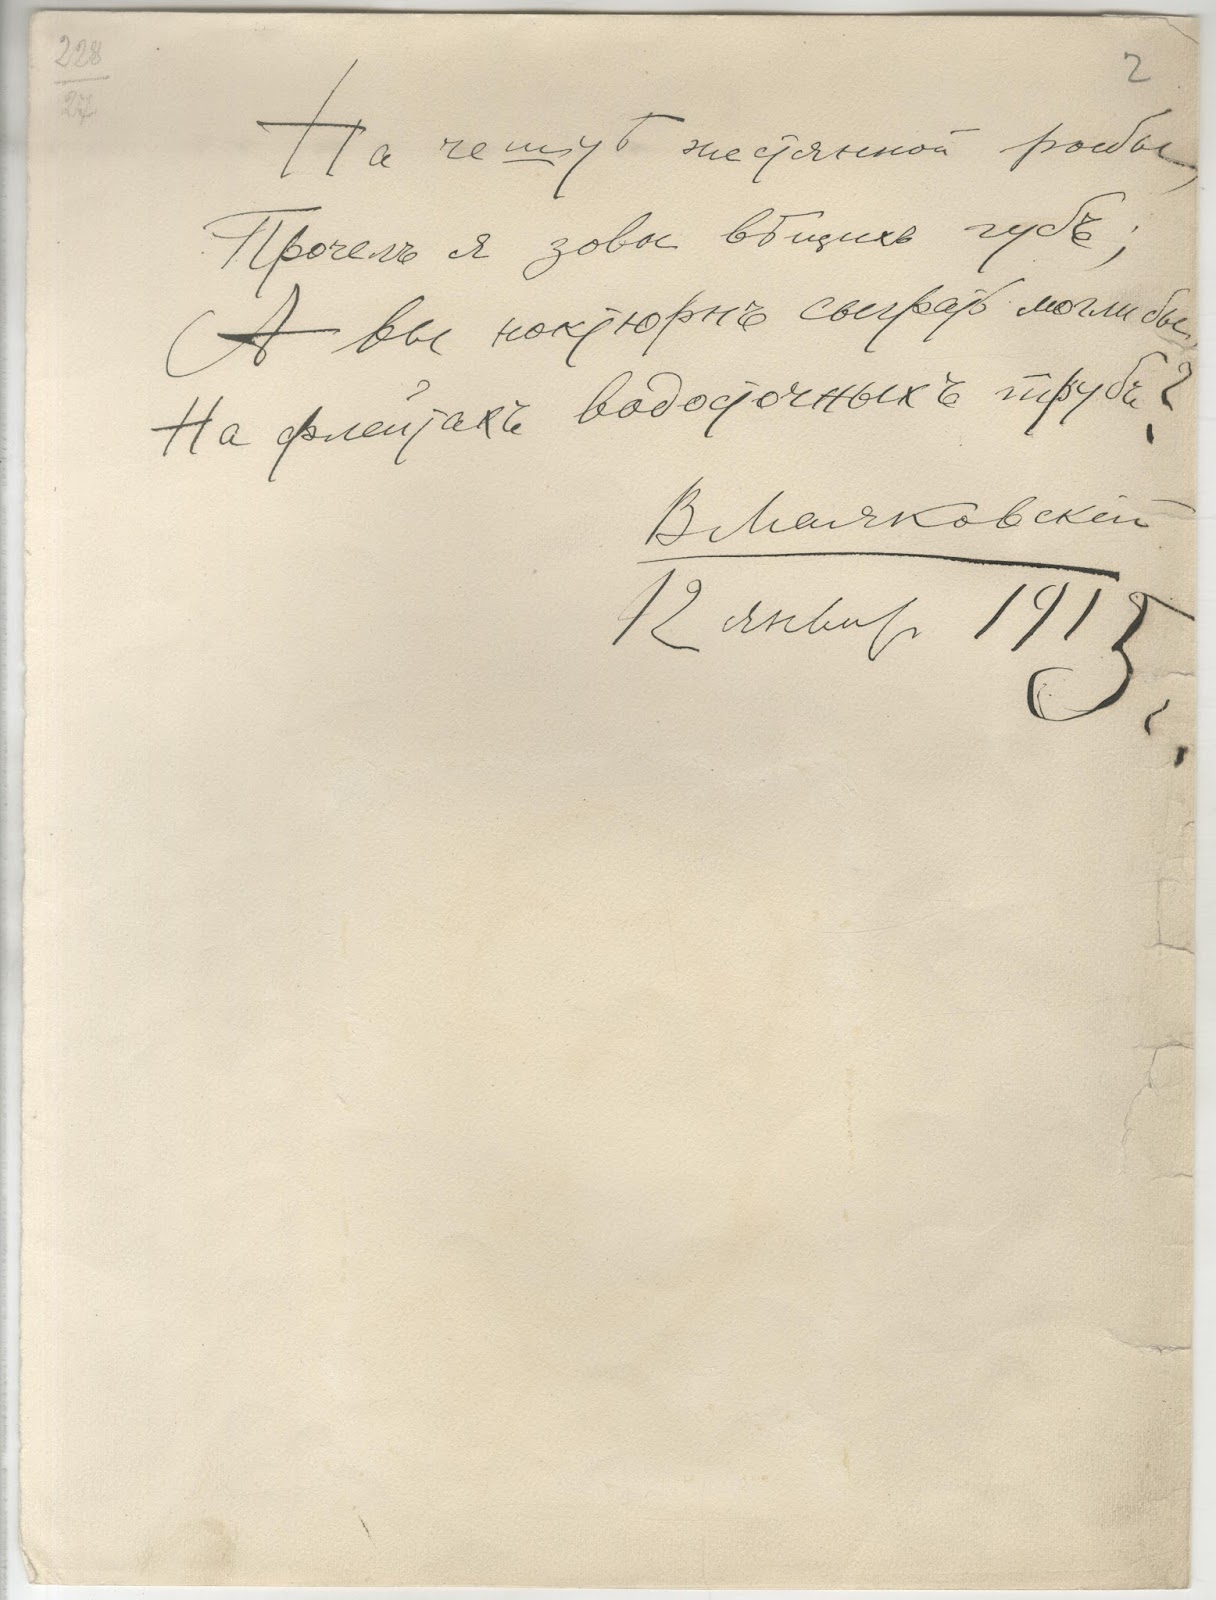 228
27
2
На чешуѣ жестянной рыбы,
Прочелъ я зовы вѣщихъ губъ;
А вы ноктюрнъ сыграть могли бы,
На флейтахъ водосточныхъ трубъ?
ВМаяковскій
12 январ 1915